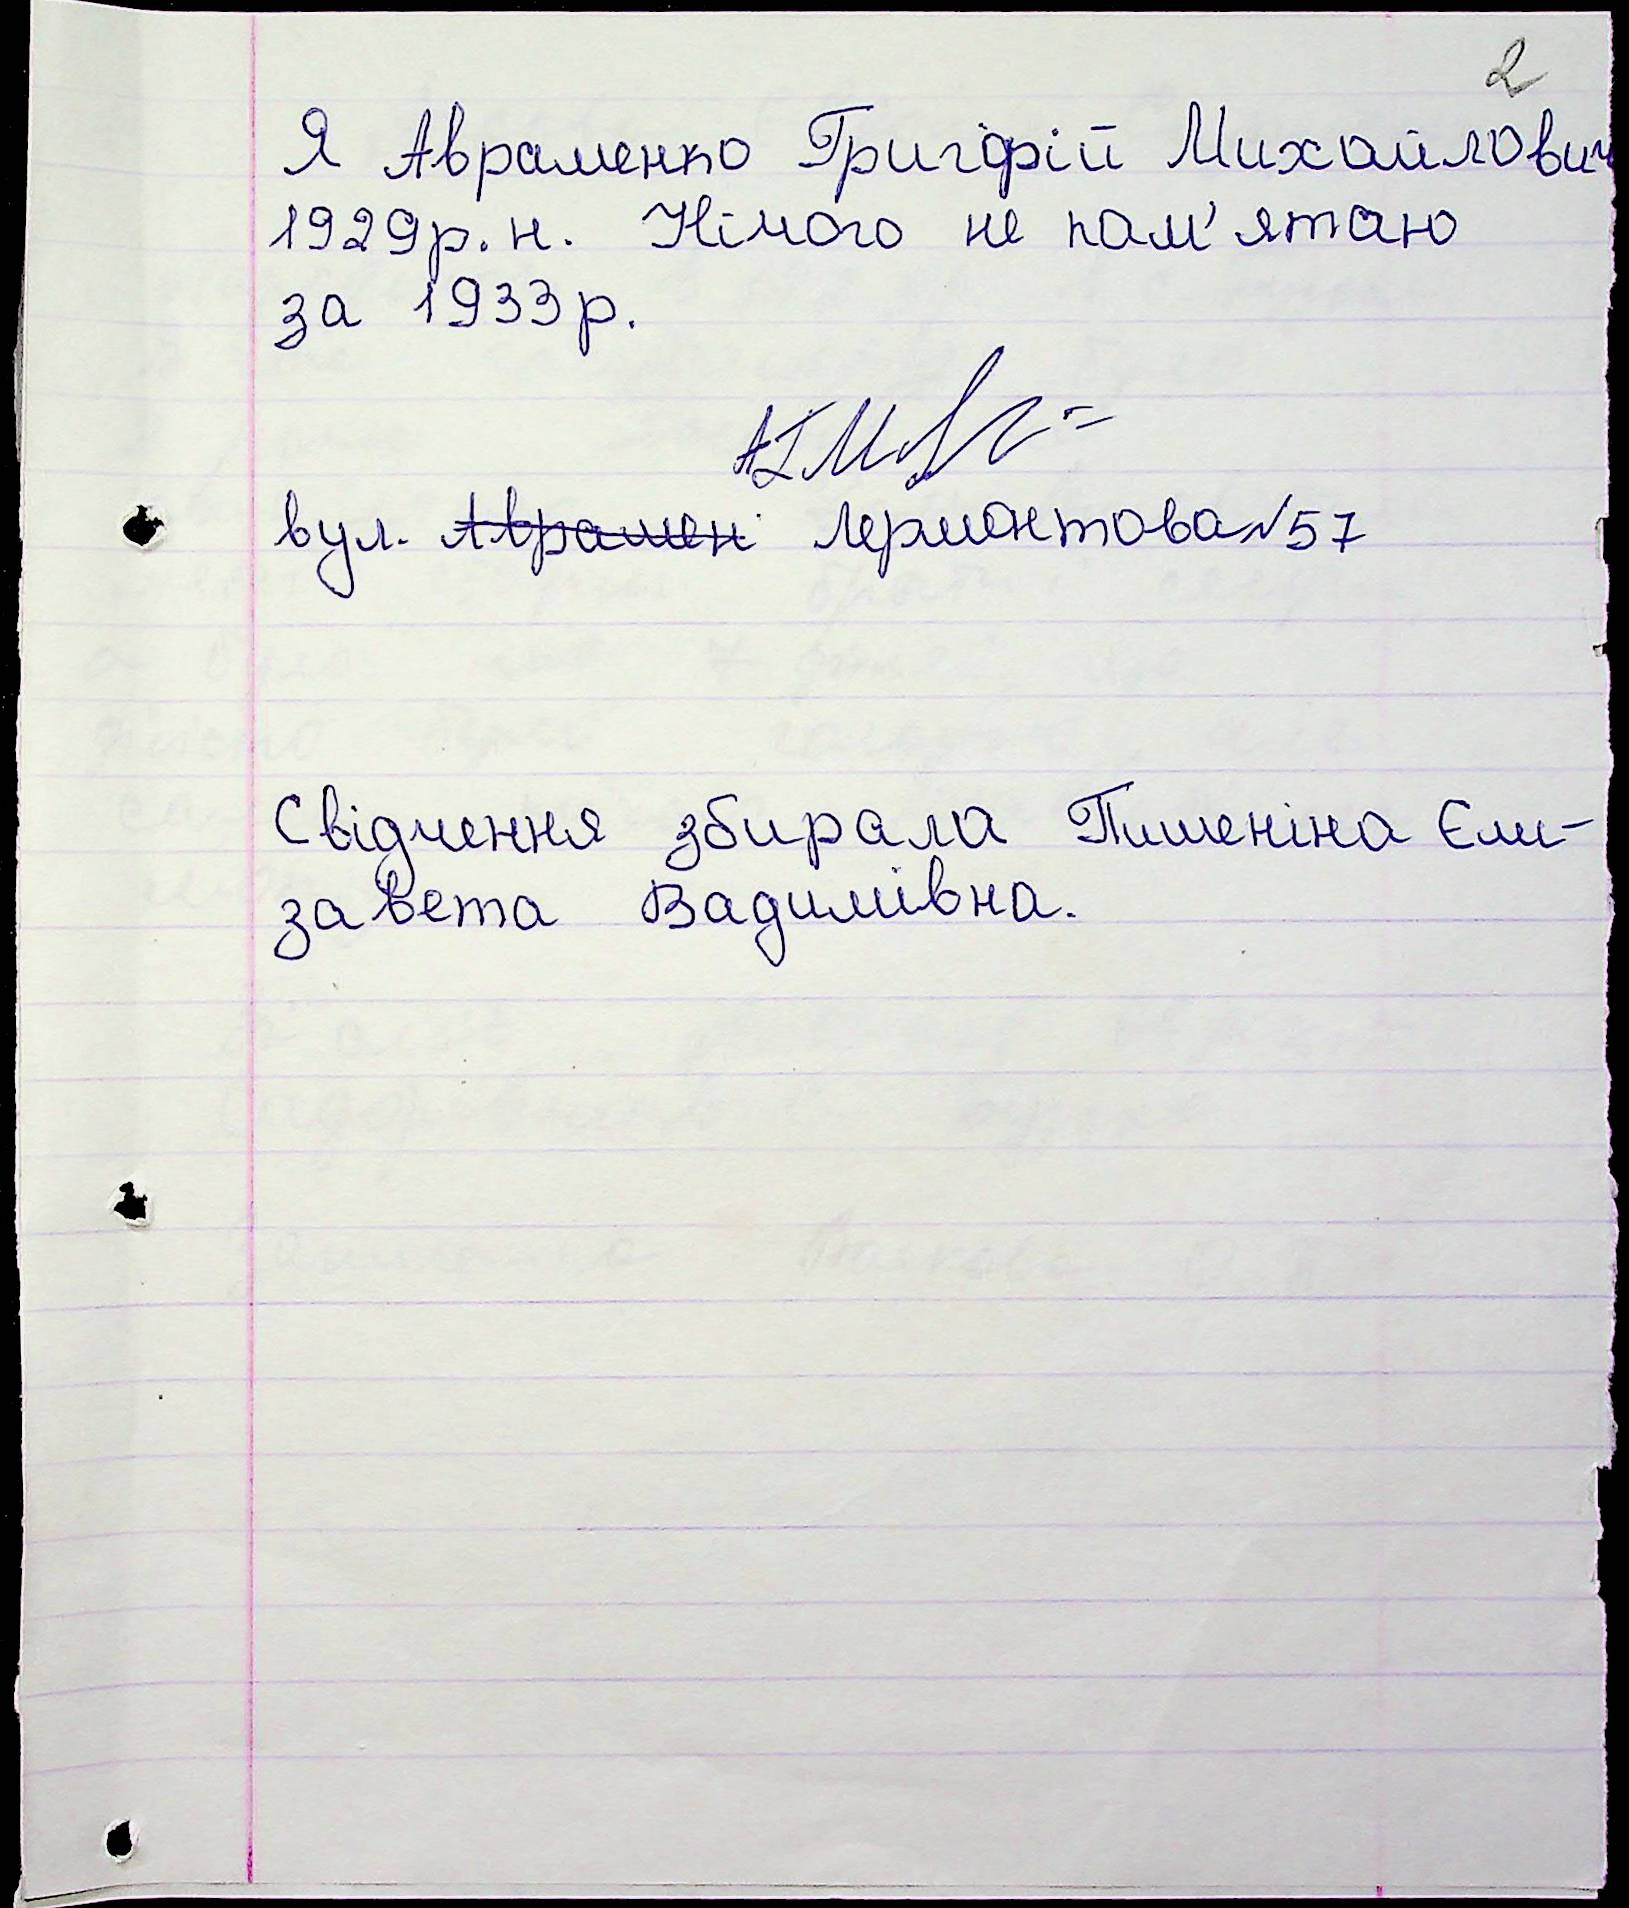 2
Я Авраменко Григорій Михайлович
1929р. н. Нічого не пам'ятаю
за 1933р.
вул. Аврамен Лермонтова №57
Свідчення збирала Пишеніна Єли-
завета Вадимівна.